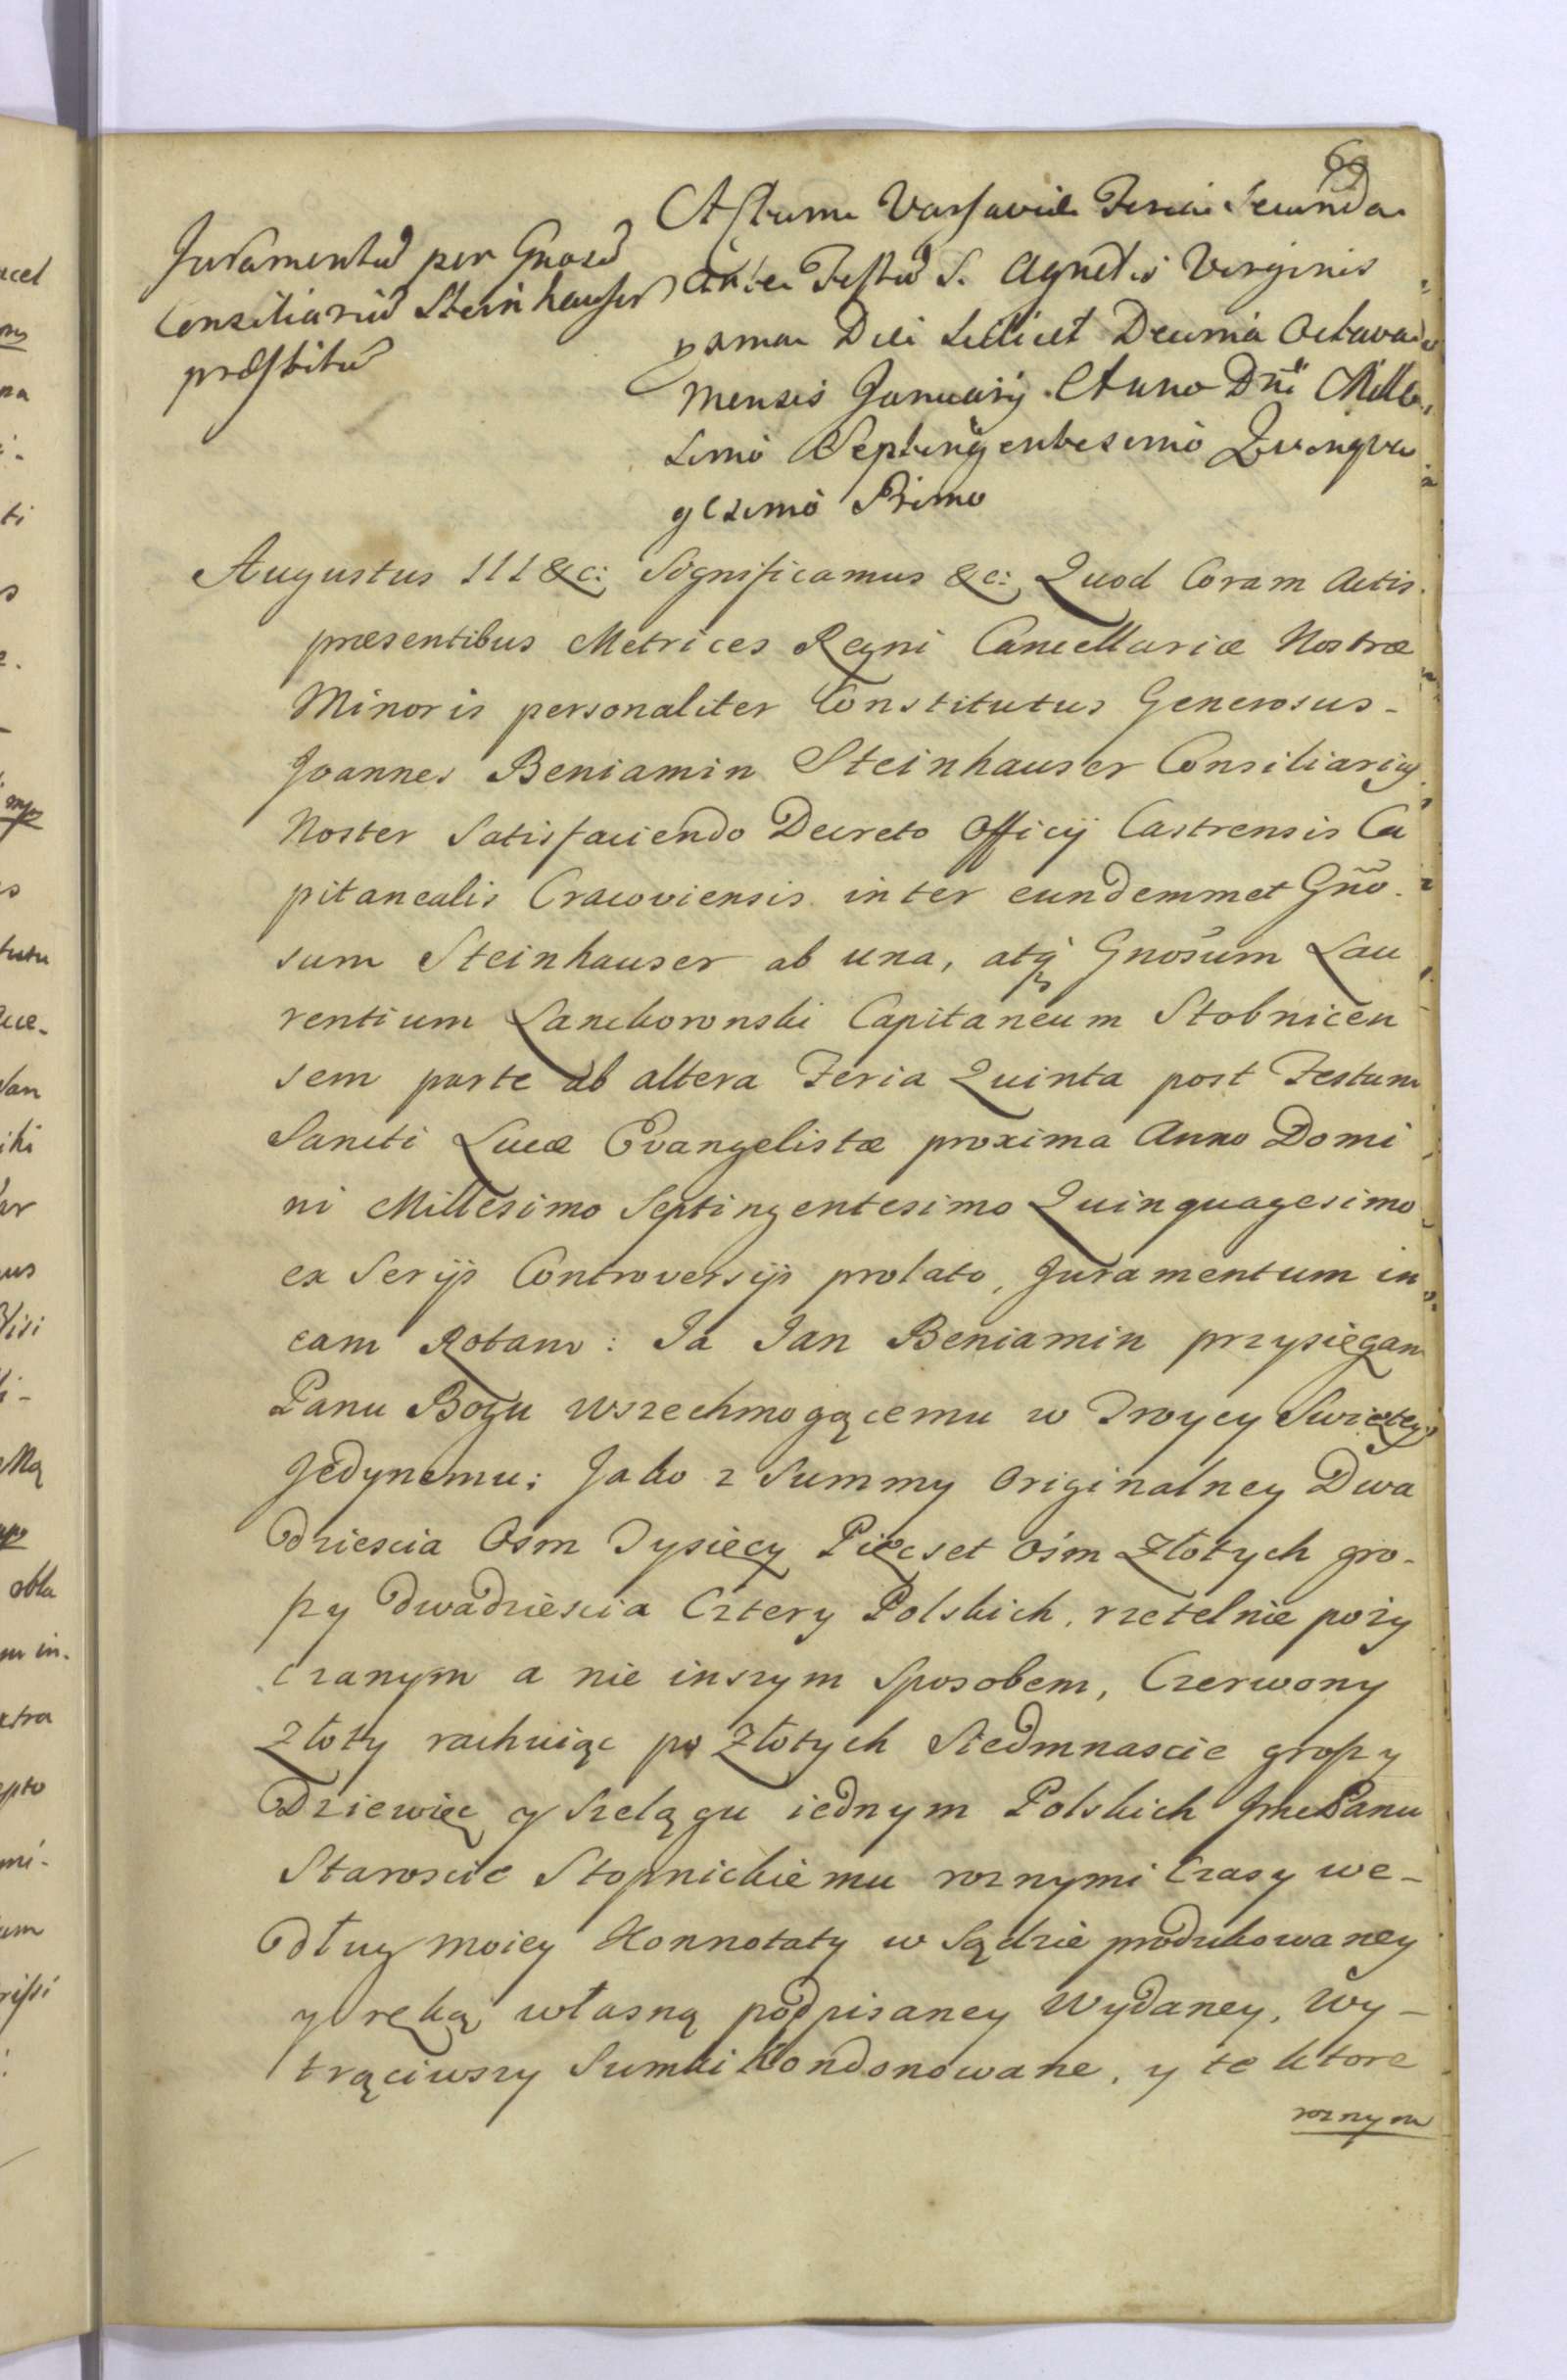 69
Juramentũ per Gnosũ
Consiliariũ Steinhauser
præstitũ
Actum Varsaviæ Feria Secunda
ante Festũ S. Agnetis Virginis
Die scilicet Decima Octava
Mensis Januarij Anno Dñi Mille
simo Septingentesimo Quinqva
gesimo Primo
Augustus III &c: Significamus &c: Quod Coram Actis
præsentibus Metrices Regni Cancellariæ Nostræ
Minoris personaliter Constitutus Generosus
Joannes Beniamin Steinhauser Consiliariq
Noster Satisfaciendo Decreto Officij Castrensis Ca
pitanealis Cracoviensis inter eundemmet Gño
sum Steinhauser ab una, atq Gnosum Lau
rentium Lanckoronski Capitaneum Stobnicen
sem parte ab altera Feria Quinta post Festum
Sancti Lucæ Evangelistæ proxima Anno Domi
ni Millesimo Septingentesimo Quinquagesimo
ex Serijs Controversijs prolato, Juramentum in
eam Rotam: Ja Jan Beniamin przysięgam
Panu Bogu Wszechmogącemu w Troycy Swiętey
Jedynemu; Jako z Summy Originalney Dwa
dziescia Osm Tysięcy Pięcset Ośm Złotych gro-
szy dwadziescia Cztery Polskich, rzetelnie poży
czanym a nie inszym Sposobem, Czerwony
Złoty rachuiąc po Złotych Siedmnascie groszy
Dziewięc y Szelągu iednym Polskich Jmć Panu
Staroscie Stopnickiemu roznymi Czasy we-
dług moiey Konnotaty w Sądzie produkowaney
y ręką własną podpisaney Wydaney, Wy-
trąciwszy Sumki Kondonowane, y te ktore
roznym